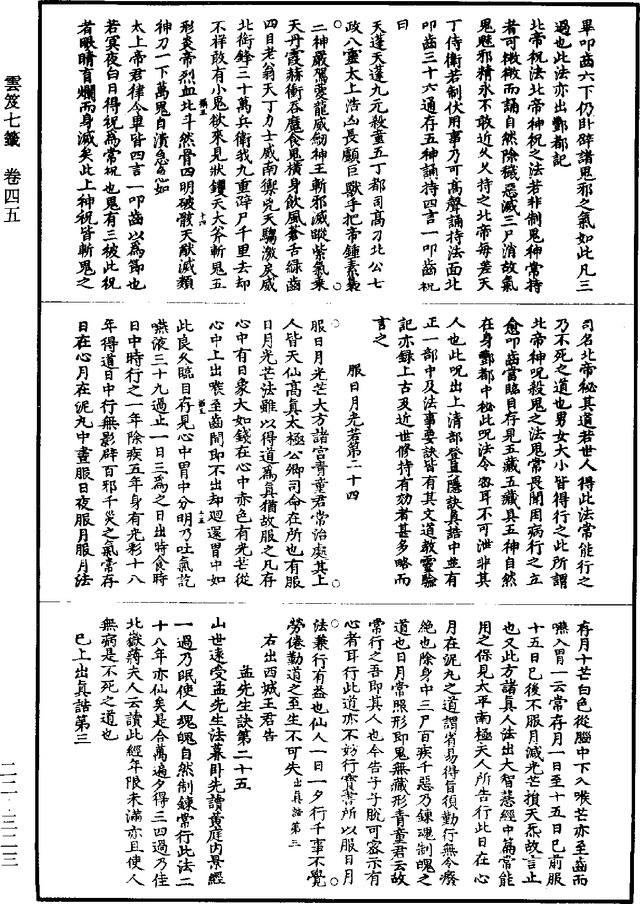 畢叩齒六下仍卧辟諸鬼邪之氣如此凡三
過也此法亦出酆都記
北帝祝法北帝神祝之法若非制鬼神常持
者可微微而誦自然除穢惡滅三尸消故氣
鬼魅邪精永不敢近久久持之北帝每差天
丁侍衛若制伏用事乃可高聲誦持法面北
叩齒三十六通存五神誦持四言一叩齒祝
曰
天蓬天蓬九元殺童五丁都司高刁北公七
政八靈太上浩凶長顱巨獸手把帝鍾素梟
二神嚴駕夔龍威劍神王斬邪滅蹤紫氣乘
天丹霞赫衝吞魔食鬼橫身飲風蒼舌綠齒
四目老翁天丁力士威南禦兇天騶激戾威
北銜鋒三十萬兵衛我九重辟尸千里去却
不祥敢有小鬼欲來見狀钁天大斧斬鬼五
形炎帝烈血北斗然骨四明破骸天猷滅類
神刀一下萬鬼自潰急急如
太上帝君律令畢皆四言一叩齒以為節也
若冥夜白日得祝為常祝也鬼有三被此祝
者眼睛盲爛而身滅矣此上神祝皆斬鬼之
司名北帝秘其道若世人得此法常能行之
乃不死之道也男女大小皆得行之此所謂
北帝神呪殺鬼之法鬼常畏聞困病行之立
愈叩齒當臨目存見五藏五藏具五神自然
在身酆都中秘此呪法令密耳不可泄非其
人也此呪出上清部登真隱訣真誥中並有
正一部中及法事要訣皆有其文道教靈驗
記亦錄上古及近世修持有効者甚多略而
言之
服日月光芒第二十四
服日月光芒大方諸宮青童君常治處其上
人皆天仙高真太極公卿司命在所也有服
日月光芒法雖以得道為真猶故服之凡存
心中有日象大如錢在心中赤色有光芒從
心中上出喉至齒間即不出却迴還胃中如
此良久臨目存見心中胃中分明乃吐氣訖
嚥液三十九過止一日三為之日出時食時
日中時行之一年除疾五年身有光彩十八
年得道日中行無影辟百邪千災之氣常存
日在心月在泥丸中晝服日夜服月服月法
存月十芒白色從腦中下入喉芒亦至齒而
嚥入胃一云常存月一日至十五日已前服
十五日已後不服月減光芒損天炁故言止
也又此方諸真人法出大智慧經中篇常能
用之保見太平南極夫人所告行此日在心
月在泥丸之道謂省易得旨須勤行無令廢
絕也除身中三尸百疾千惡乃鍊魂制魄之
道也日月常照形即鬼無藏形青童君云故
常行之吾即其人也今告子子脫可密示有
心者耳行此道亦不妨行寶書所以服日月
法兼行有益也仙人一日一夕行千事不覺
勞倦勤道之至生不可失出真誥第三
右出西城王君告
孟先生訣第二十五
山世遠受孟先生法暮卧先讀黃庭內景經
一過乃眠使人魂魄自然制鍊常行此法二
十八年亦仙矣是合萬遍夕得三四過乃佳
北嶽蔣夫人云讀此經年限未滿亦且使人
無病是不死之道也
已上出真誥第三
雲笈七籤 卷四五
二二·三二三